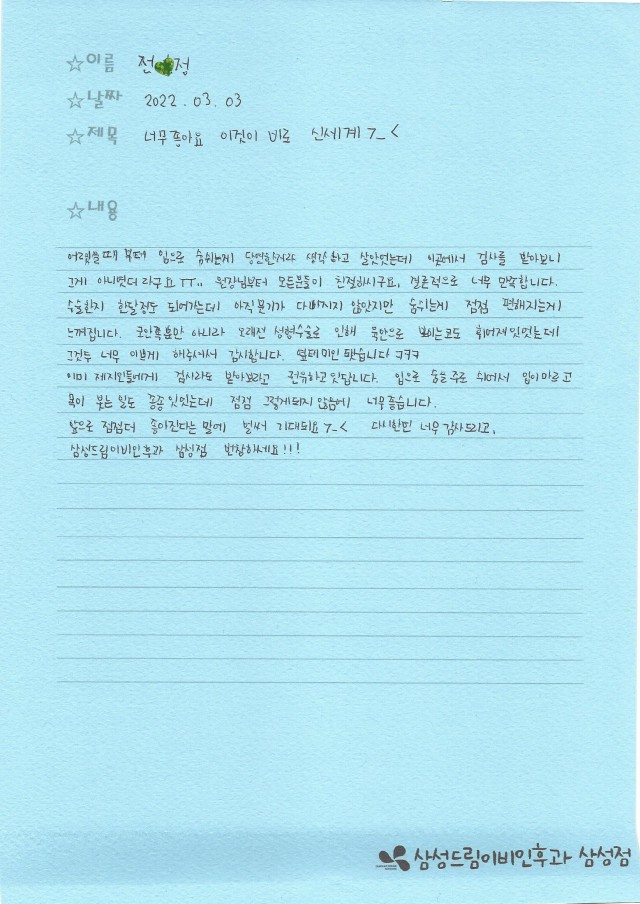 ☆이름 전 정
☆날짜 2022.03.03
☆제목 너무좋아요 이것이 바로 신세계 7_<
☆내용
어렸을때 부터 입으로 숨쉬는게 당연한거라 생각하고 살앗엇는데 이곳에서 검사를 받아보니
그게 아니엿더라구요ㅠㅠ.. 원장님부터 모든분들이 친절하시구요, 결론적으로 너무 만족합니다.
수술한지 한달정도 되어가는데 아직 붓기가 다빠지지 않앗지만 숨쉬는게 점점 편해지는게
느껴집니다. 코안쪽뿐만 아니라 오래전 성형수술로 인해 육안으로 보이는코도 휘어져있엇는데
그것두 너무 이쁘게 해주셔서 감사합니다. 열테미인 됏습니다 ㅋㅋㅋ
이미 제지인들에게 검사라도 받아보라고 권유하고 잇답니다. 입으로 숨을 주로 쉬어서 입이마르고
목이 붓는 일도 종종 잇엇는데 점점 그렇게되지 않음에 너무좋습니다.
앞으로 점점더 좋아진다는 말에 벌써 기대되요 7_< 다시한번 너무감사드리고,
삼성드림이비인후과 삼성점 번창하세요!!!
삼성드림이비인후과 삼성점